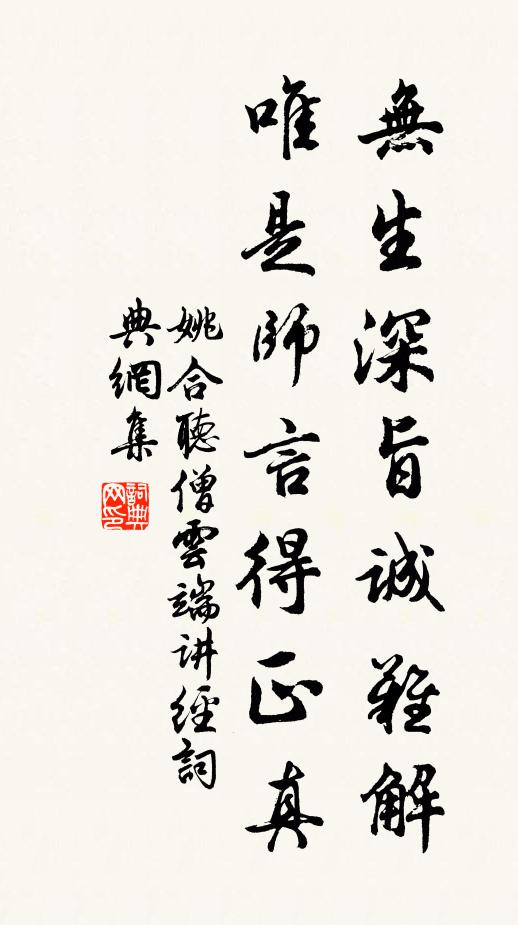 無生深旨誠難解
唯是師言得正真
姚合聽僧雲端讲經詞
典網集
詞典
网印